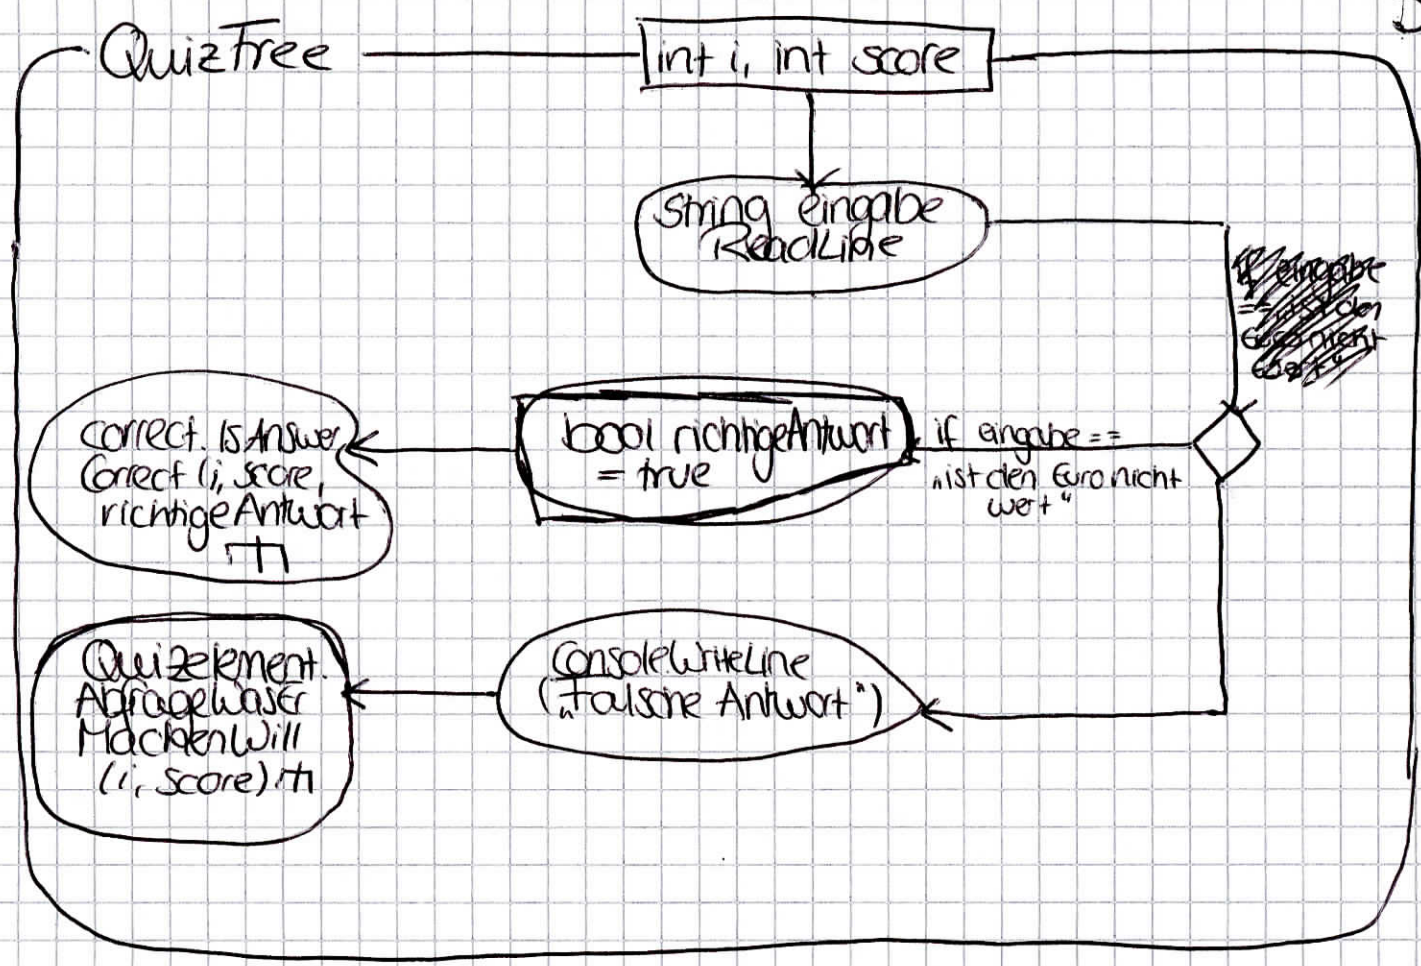 QuizFree
int i, int score
string eingabe
ReadLine
if eingabe
== "ist den
Euro nicht
wert"
if eingabe ==
„ist den Euro nicht
wert“
bool richtigeAntwort
= true
correct. IsAnswer
Correct (i, score,
richtigeAntwort
ConsoleWriteLine
(„Falsche Antwort“)
Quizelement.
AbfrageWasEr
MachenWill
(i, score)